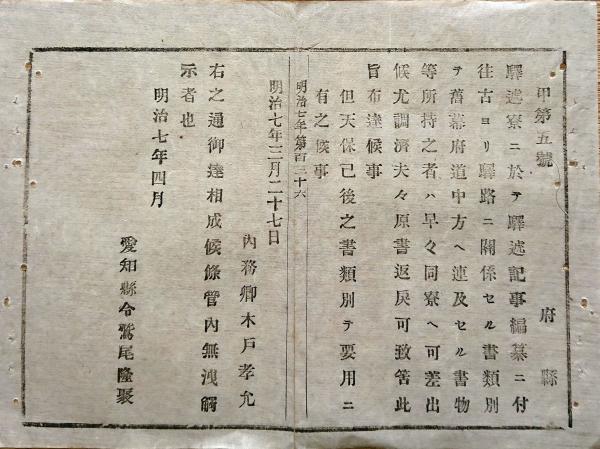 甲第五號
府縣
驛逓寮ニ於テ驛逓記事編纂ニ付
往古ヨリ驛路ニ關係セル書類別
テ舊幕府道中方ヘ連及セル書物
等所持之者ハ早々同寮ヘ可差出
候尤調濟夫々原書返戻可致筈此
旨布達候事
但天保已後之書類別テ要用ニ
有之候事
明治七年第百三十六
明治七年三月二十七日
內務卿木戸孝允
右之通御達相成候條管內無洩觸
示者也
明治七年四月
愛知縣令鷲尾隆聚